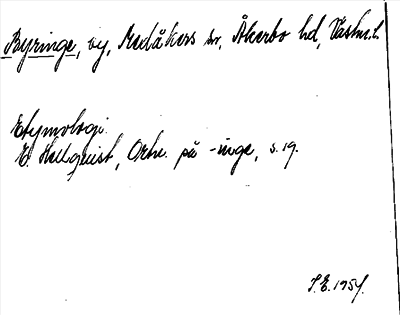 Byringe, by, Medåkers sn, Åkerbo hd, Västm.l.
Etymologi.
E. Hellquist, Ortn. på -inge, s. 19.
S.E. 1954.